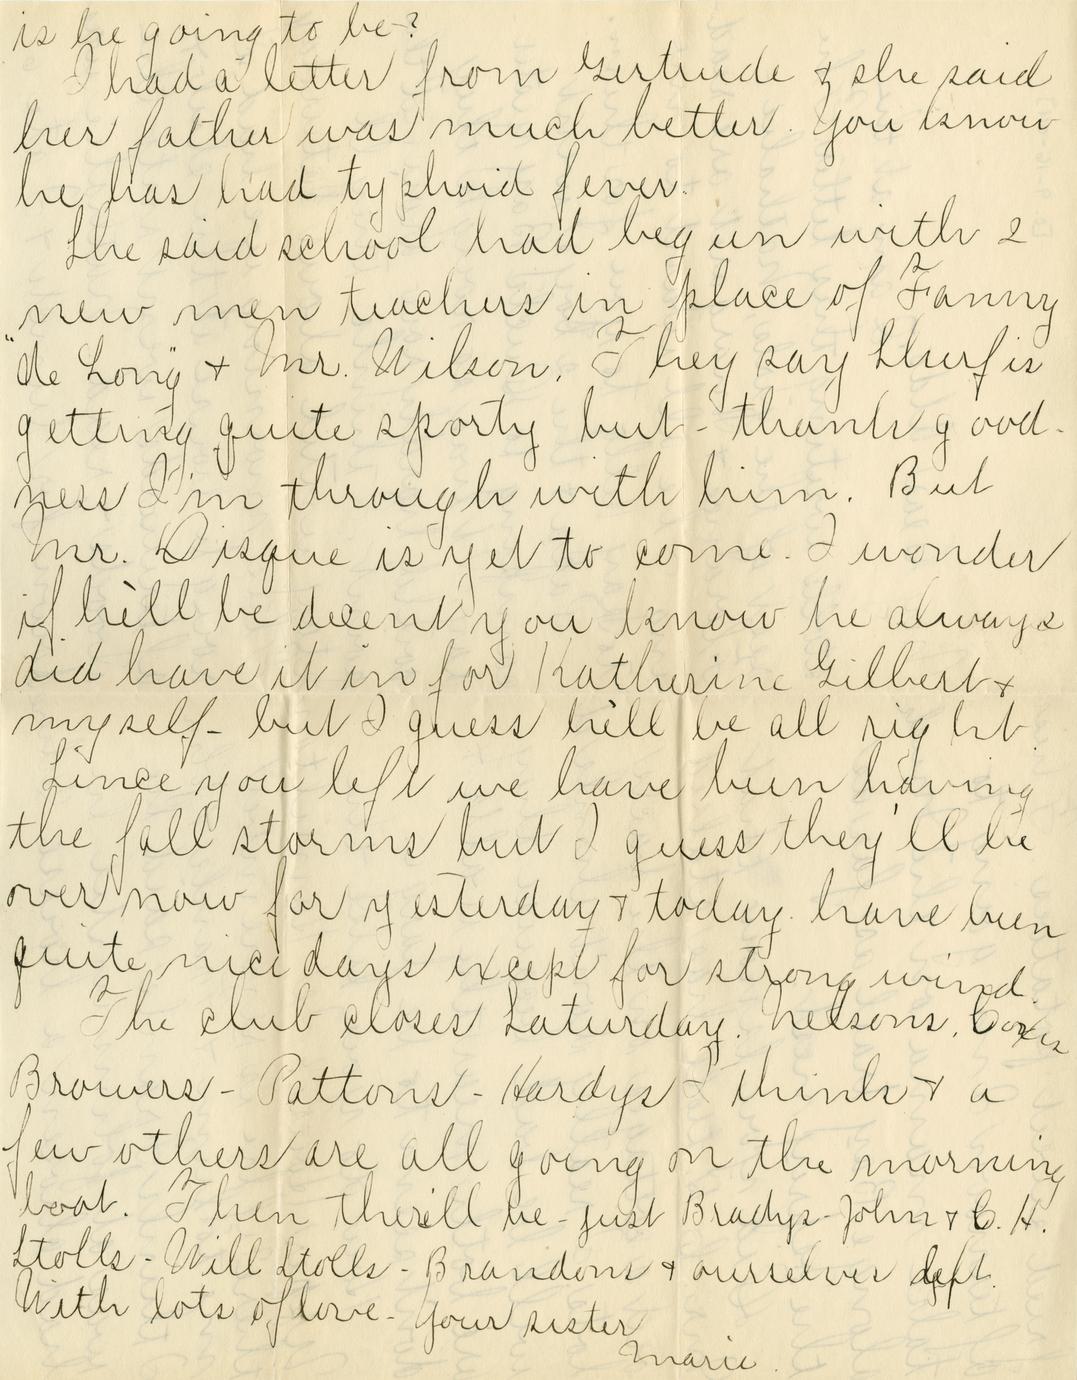 is he going to be?
I had a letter from Gertrude & she said
her father was much better. You know
he has had typhoid fever.
She said school had begun with 2
new men teachers in place of Fanny
"de Long" & Mr. Wilson. They say is
getting quite sporty but - thank good-
ness I'm through with him. But
Mr. Disque is yet to come. I wonder
if he'll be decent you know he always
did have it in for Katherine Gilbert &
myself - but I guess he'll be all right.
Since you left we have been having
the fall storms but I guess they'll be
over now for yesterday & today have been
quite nice days except for strong wind.
The club closes Saturday. Nelsons, Coxes
Browers - Pattons - Hardys I think & a
few others are all going on the morning
boat. Then there'll be - just Bradys - John & C. H.
Stolls - Will Stolls - Brandons & ourselves left.
With lots of love - Your sister
Marie.